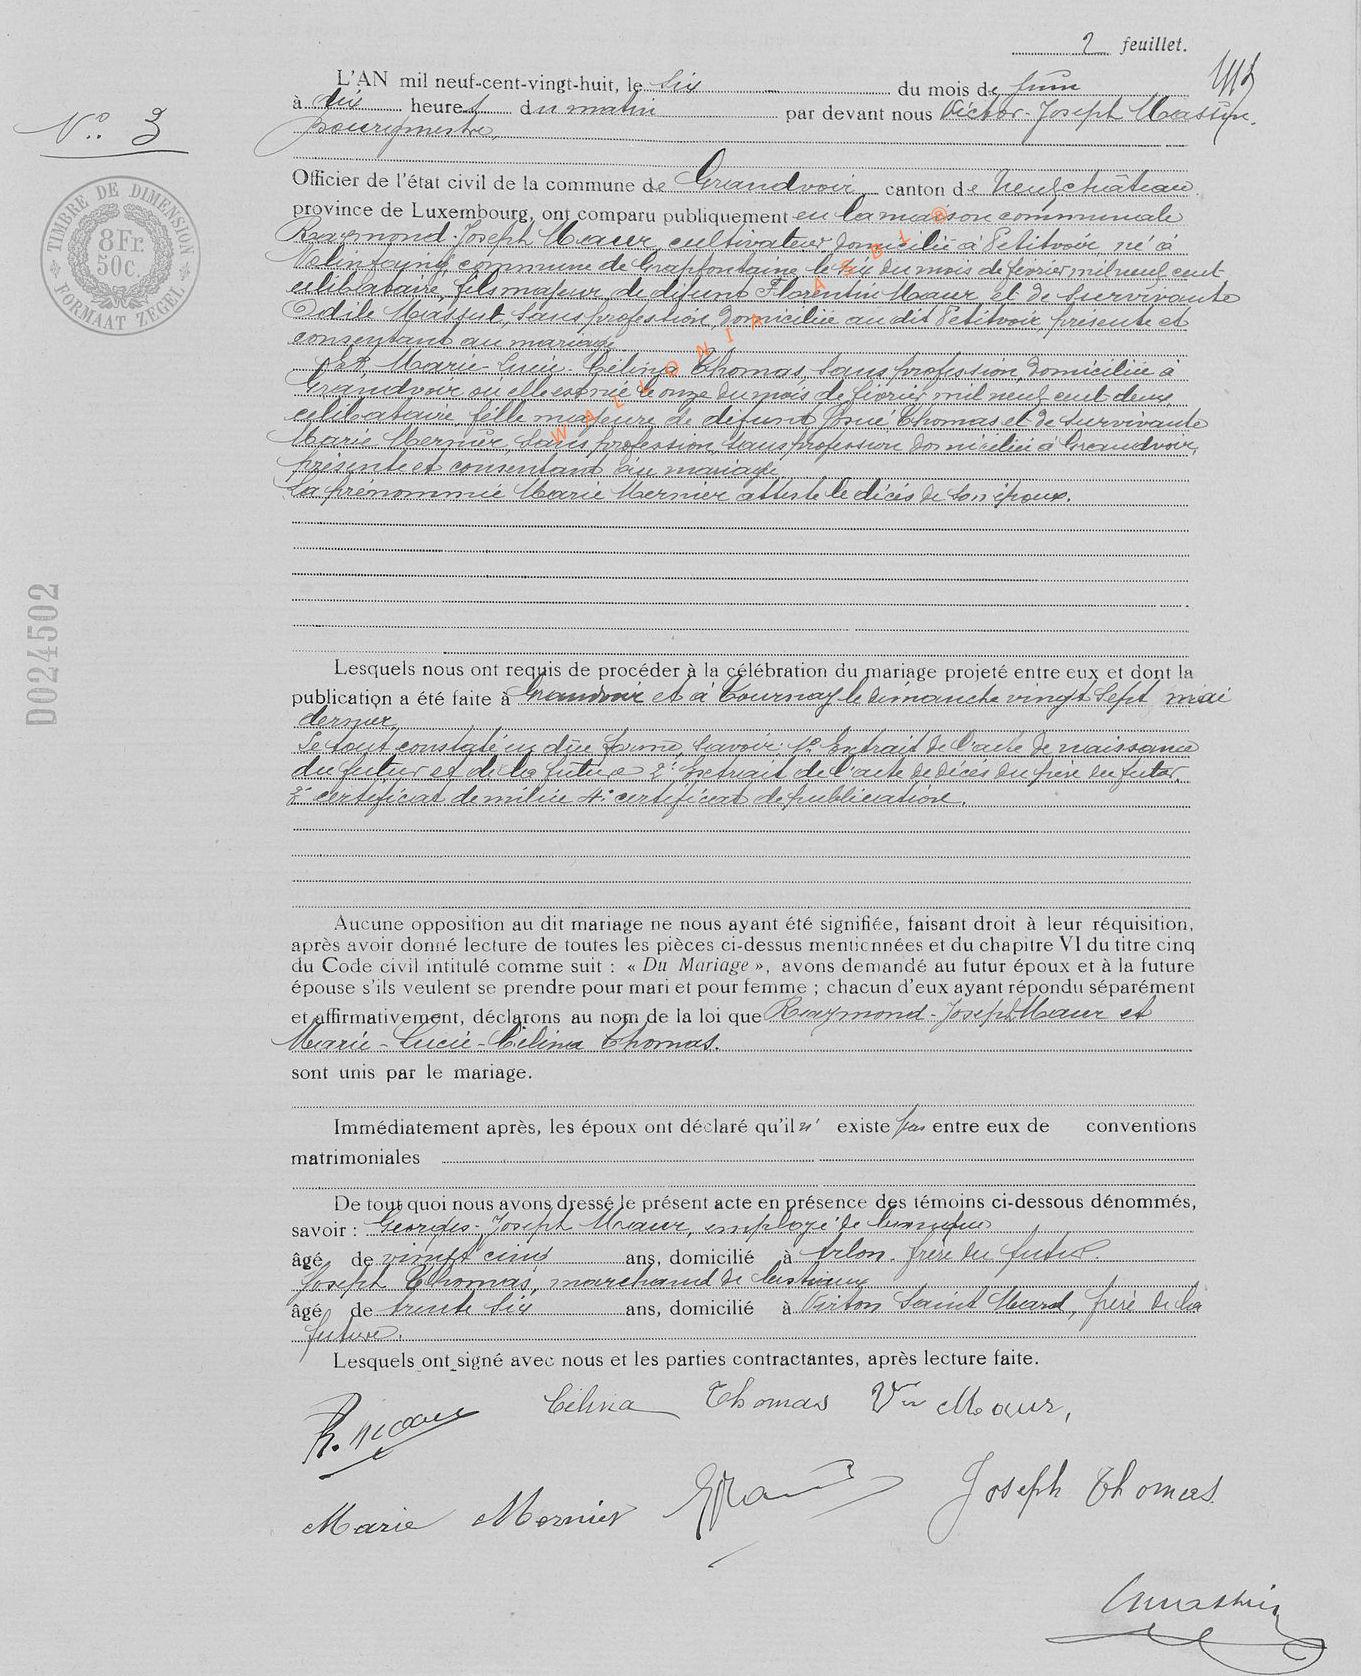 2 feuillet.
L'AN mil neuf-cent-vingt-huit, le six du mois de Juin
N° 3
à dix heures du matin par devant nous Victor-Joseph Massin,
bourgmestre,
Officier de l'état civil de la commune de Grandvoir canton de Neufchâteau
province de Luxembourg, ont comparu publiquement en la maison communale
Raymond-Joseph Maur, cultivateur domicilié à Petitvoir, né à
commune de Grapfontaine, le six du mois de février mil neuf cent
célibataire, fils majeur de défunt Florentin Maur et de survivante
Odile sans profession, domiciliée au dit Petitvoir, présente et
consentant au mariage
Et Marie-Lucie-Célina Thomas, sans profession, domiciliée à
Grandvoir où elle est née le onze du mois de février mil neuf cent deux,
célibataire, fille majeure de défunt Josué Thomas et de survivante
Marie Mernier, sans profession, sans profession domiciliée à Grandvoir,
présente et consentant au mariage
La prénommée Marie Mernier atteste le décès de son époux.
TIMBRE DE DIMENSION
8 Fr.
50c.
FORMAAT ZEGEL
WALLONIA ASBL ®
D024502
Lesquels nous ont requis de procéder à la célébration du mariage projeté entre eux et dont la
publication a été faite à Grandvoir et à Tournay le dimanche vingt sept mai
dernier
Le tout constaté en dûe forme, savoir: 1° Extrait de l'acte de naissance
du futur et de la future 2° Extrait de l'acte de décès du père du futur
3° certificat de milice 4° certificat de publication.
Aucune opposition au dit mariage ne nous ayant été signifiée, faisant droit à leur réquisition,
après avoir donné lecture de toutes les pièces ci-dessus mentionnées et du chapitre VI du titre cinq
du Code civil intitulé comme suit : « Du Mariage », avons demandé au futur époux et à la future
épouse s'ils veulent se prendre pour mari et pour femme ; chacun d'eux ayant répondu séparément
et affirmativement, déclarons au nom de la loi que Raymond-Joseph Maur et
Marie-Lucie-Célina Thomas.
sont unis par le mariage.
Immédiatement après, les époux ont déclaré qu'il n' existe pas entre eux de conventions
matrimoniales
De tout quoi nous avons dressé le présent acte en présence des témoins ci-dessous dénommés,
savoir : Georges-Joseph Maur, employé de banque
âgé de vingt cinq ans, domicilié à Arlon frère du futur.
Joseph Thomas, marchand de bestiaux
âgé de trente six ans, domicilié à Virton Saint Mard, frère de la
future.
Lesquels ont signé avec nous et les parties contractantes, après lecture faite.
R. Maur Célina Thomas Vve Maur,
Marie Mernier Joseph Thomas